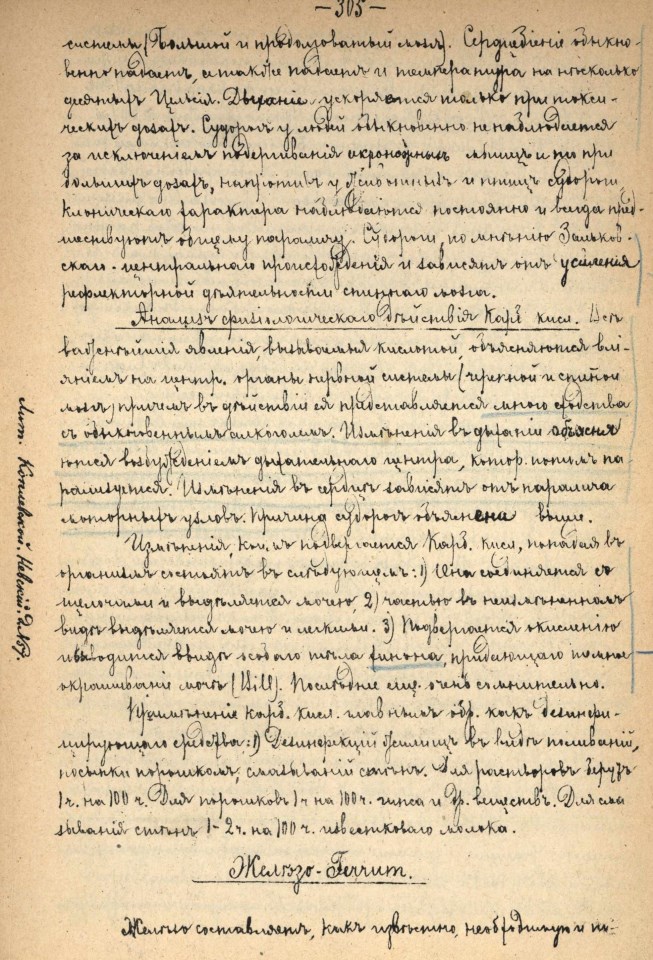 — 305 —
системы (Большой и продолговатый мозг). Сердцебіеніе обыкно-
венно падаетъ, а также падаетъ и температура на нѣсколько
десятыхъ Цельсія. Дыханіе ускоряется только при токси-
ческихъ дозахъ. Судороги у людей обыкновенно не наблюдаются
за исключеніемъ подергиванія мышцъ и то при
большихъ дозахъ, напротивъ у животныхъ и птицъ судороги
клоническаго характера наблюдаются постоянно и всегда пред-
шествуютъ общему параличу. Судороги, по мнѣнію Зальков-
скаго центральнаго происхожденія и зависятъ отъ усиленія
рефлекторной дѣятельности спиннаго мозга.
Анализъ физіологическаго дѣйствія Карб. кисл. Всѣ
важнѣйшія явленія, вызываемыя кислотой, объясняются влі-
яніемъ на центр. органы нервной системы (черепной и спиной
мозгъ) причемъ въ дѣйствіи ея представляется много сходства
съ обыкновеннымъ алкоголемъ. Измѣненія въ дыханіи объясня
ются возбужденіемъ дыхательнаго центра, котор. потомъ па-
рализуется. Измѣненія въ сердцѣ зависятъ отъ паралича
моторныхъ узловъ. Причина судорогъ объяснена выше.
Измѣненія, коимъ подвергается Карб. кисл., попадая въ
организмъ состоятъ въ слѣдующемъ: 1) Она соединяется съ
щелочами и выдѣляется мочею, 2) частью въ неизмѣненномъ
видѣ выдѣляется мочею и легкими. 3) Подвергается окисленію
и выводится въ видѣ особаго тѣла хинона, придающаго темное
окрашиваніе мочѣ (Hill). Послѣднее еще очень сомнительно.
Примѣненіе карб. кисл. главнымъ обр. какъ дезинфи-
цирующаго средства: 1) Дезинфекцій жилищъ въ видѣ поливаній,
посыпки порошкомъ, смазываній стѣнъ. Для растворовъ берутъ
1 ч. на 100 ч. Для порошковъ 1 ч на 100 ч. гипса и др. веществъ. Для сма
зыванія стѣнъ 1-2 ч. на 100 ч. известковаго молока.
Желѣзо-Ferrum.
Желѣзо составляетъ, какъ извѣстно, необходимую и
Лит. Невскій.